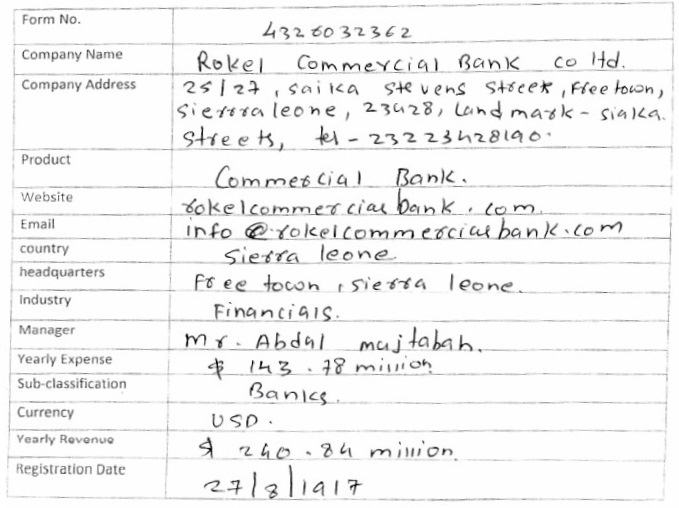 Form No. 4326032362
Company Name Rokel Commercial Bank co ltd.
Company Address 25/27, saika stevens street, free town,
sierra leone, 23428, Land mark - sialka
streets, tel - 23223428190.
Product Commercial Bank.
Website rokelcommercial bank.com.
Email info@rokelcommercialbank.com
country sierra leone
headquarters Free town, sierra leone.
Industry Financials.
Manager mr. Abdul mujtabah.
Yearly Expense $ 143.78 million
Sub-classification Banks.
Currency USD.
Yearly Revenue $ 240.84 million
Registration Date 27/8/1917